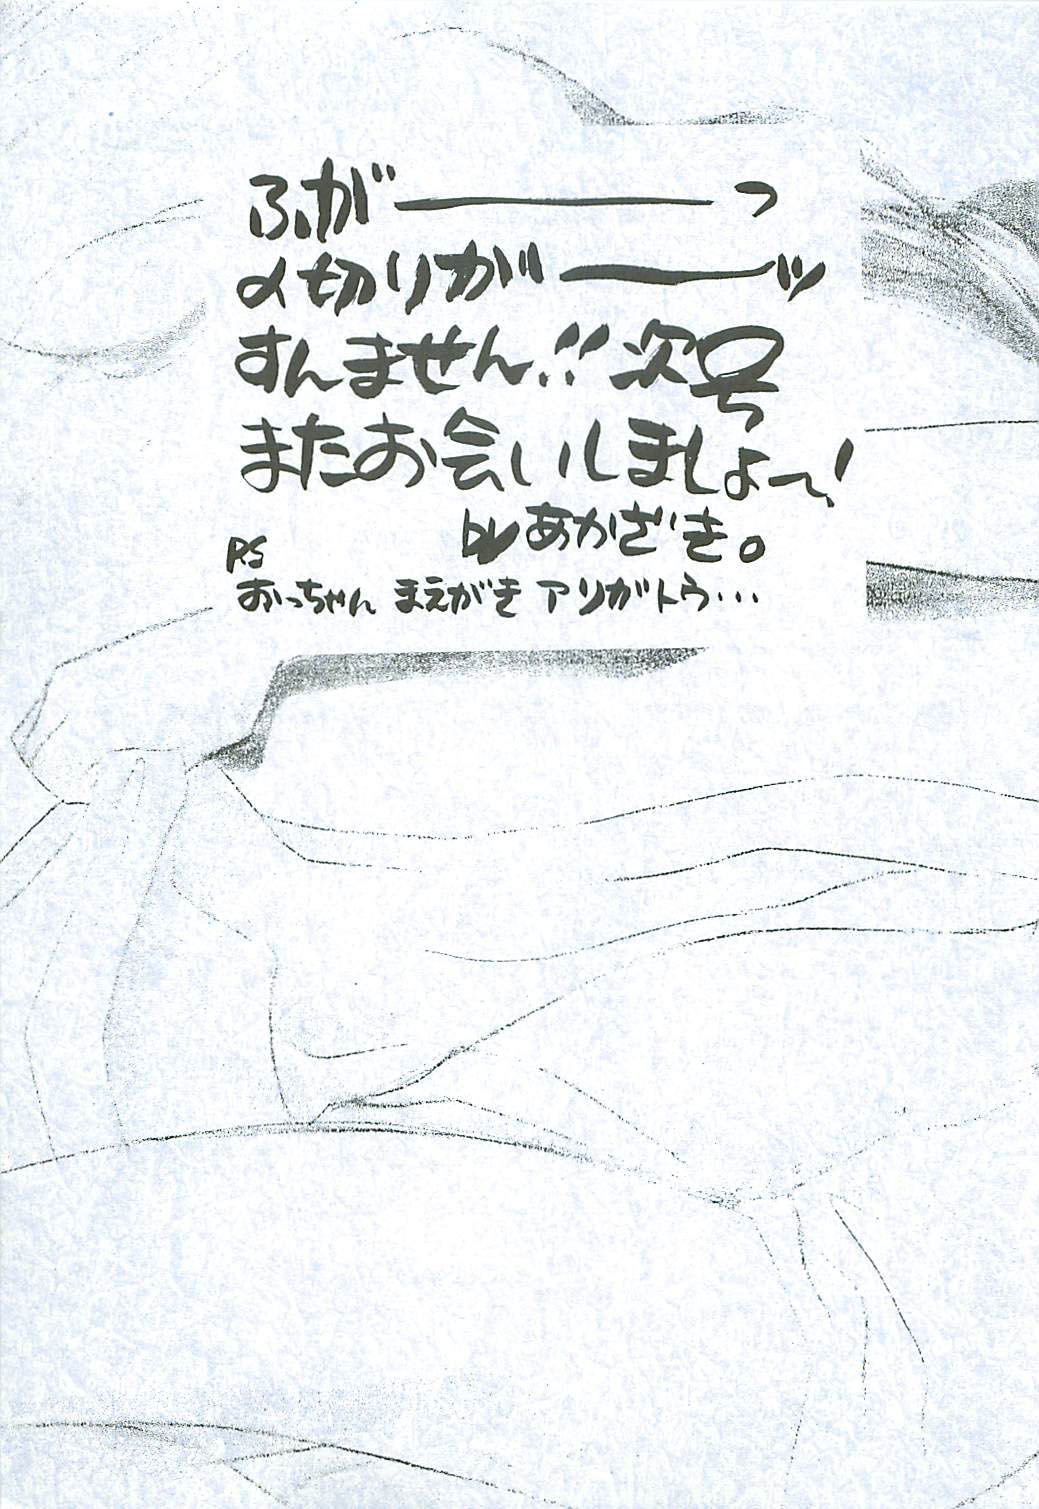 ふがーーーっ
〆切りがーーーッ
すんません!!次号
またお会いしましょー!
by あかざき。
P.S
おっちゃん まえがき アリガトウ・・・